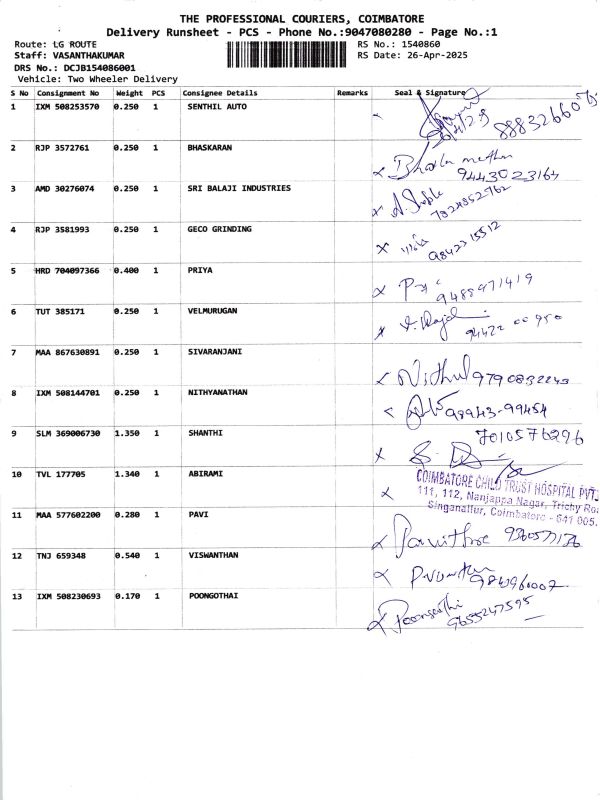 THE PROFESSIONAL COURIERS, COIMBATORE
Delivery Runsheet - PCS - Phone No.:9047080280 - Page No.:1
Route: LG ROUTE
RS No.: 1540860
Staff: VASANTHAKUMAR
RS Date: 26-Apr-2025
DRS No.: DCJB154086001
Vehicle: Two Wheeler Delivery
S No Consignment No Weight PCS Consignee Details Remarks Seal & Signature
1 IXM 508253570 0.250 1 SENTHIL AUTO
2 RJP 3572761 0.250 1 BHASKARAN
9443023164
3 AMD 30276074 0.250 1 SRI BALAJI INDUSTRIES
4 RJP 3581993 0.250 1 GECO GRINDING
9842215512
5 HRD 704097366 0.400 1 PRIYA
9488971419
6 TUT 385171 0.250 1 VELMURUGAN
7 MAA 867630891 0.250 1 SIVARANJANI
Nithul
8 IXM 508144701 0.250 1 NITHYANATHAN
98943-99454
9 SLM 369006730 1.350 1 SHANTHI
7010576296
10 TVL 177705 1.340 1 ABIRAMI
COIMBATORE CHILD TRUST HOSPITAL PVT.
111, 112, Nanjappa Nagar, Trichy Ro
Singanallur, Coimbatore - 641 005.
11 MAA 577602200 0.280 1 PAVI
12 TNJ 659348 0.540 1 VISWANTHAN
13 IXM 508230693 0.170 1 POONGOTHAI
9655247595